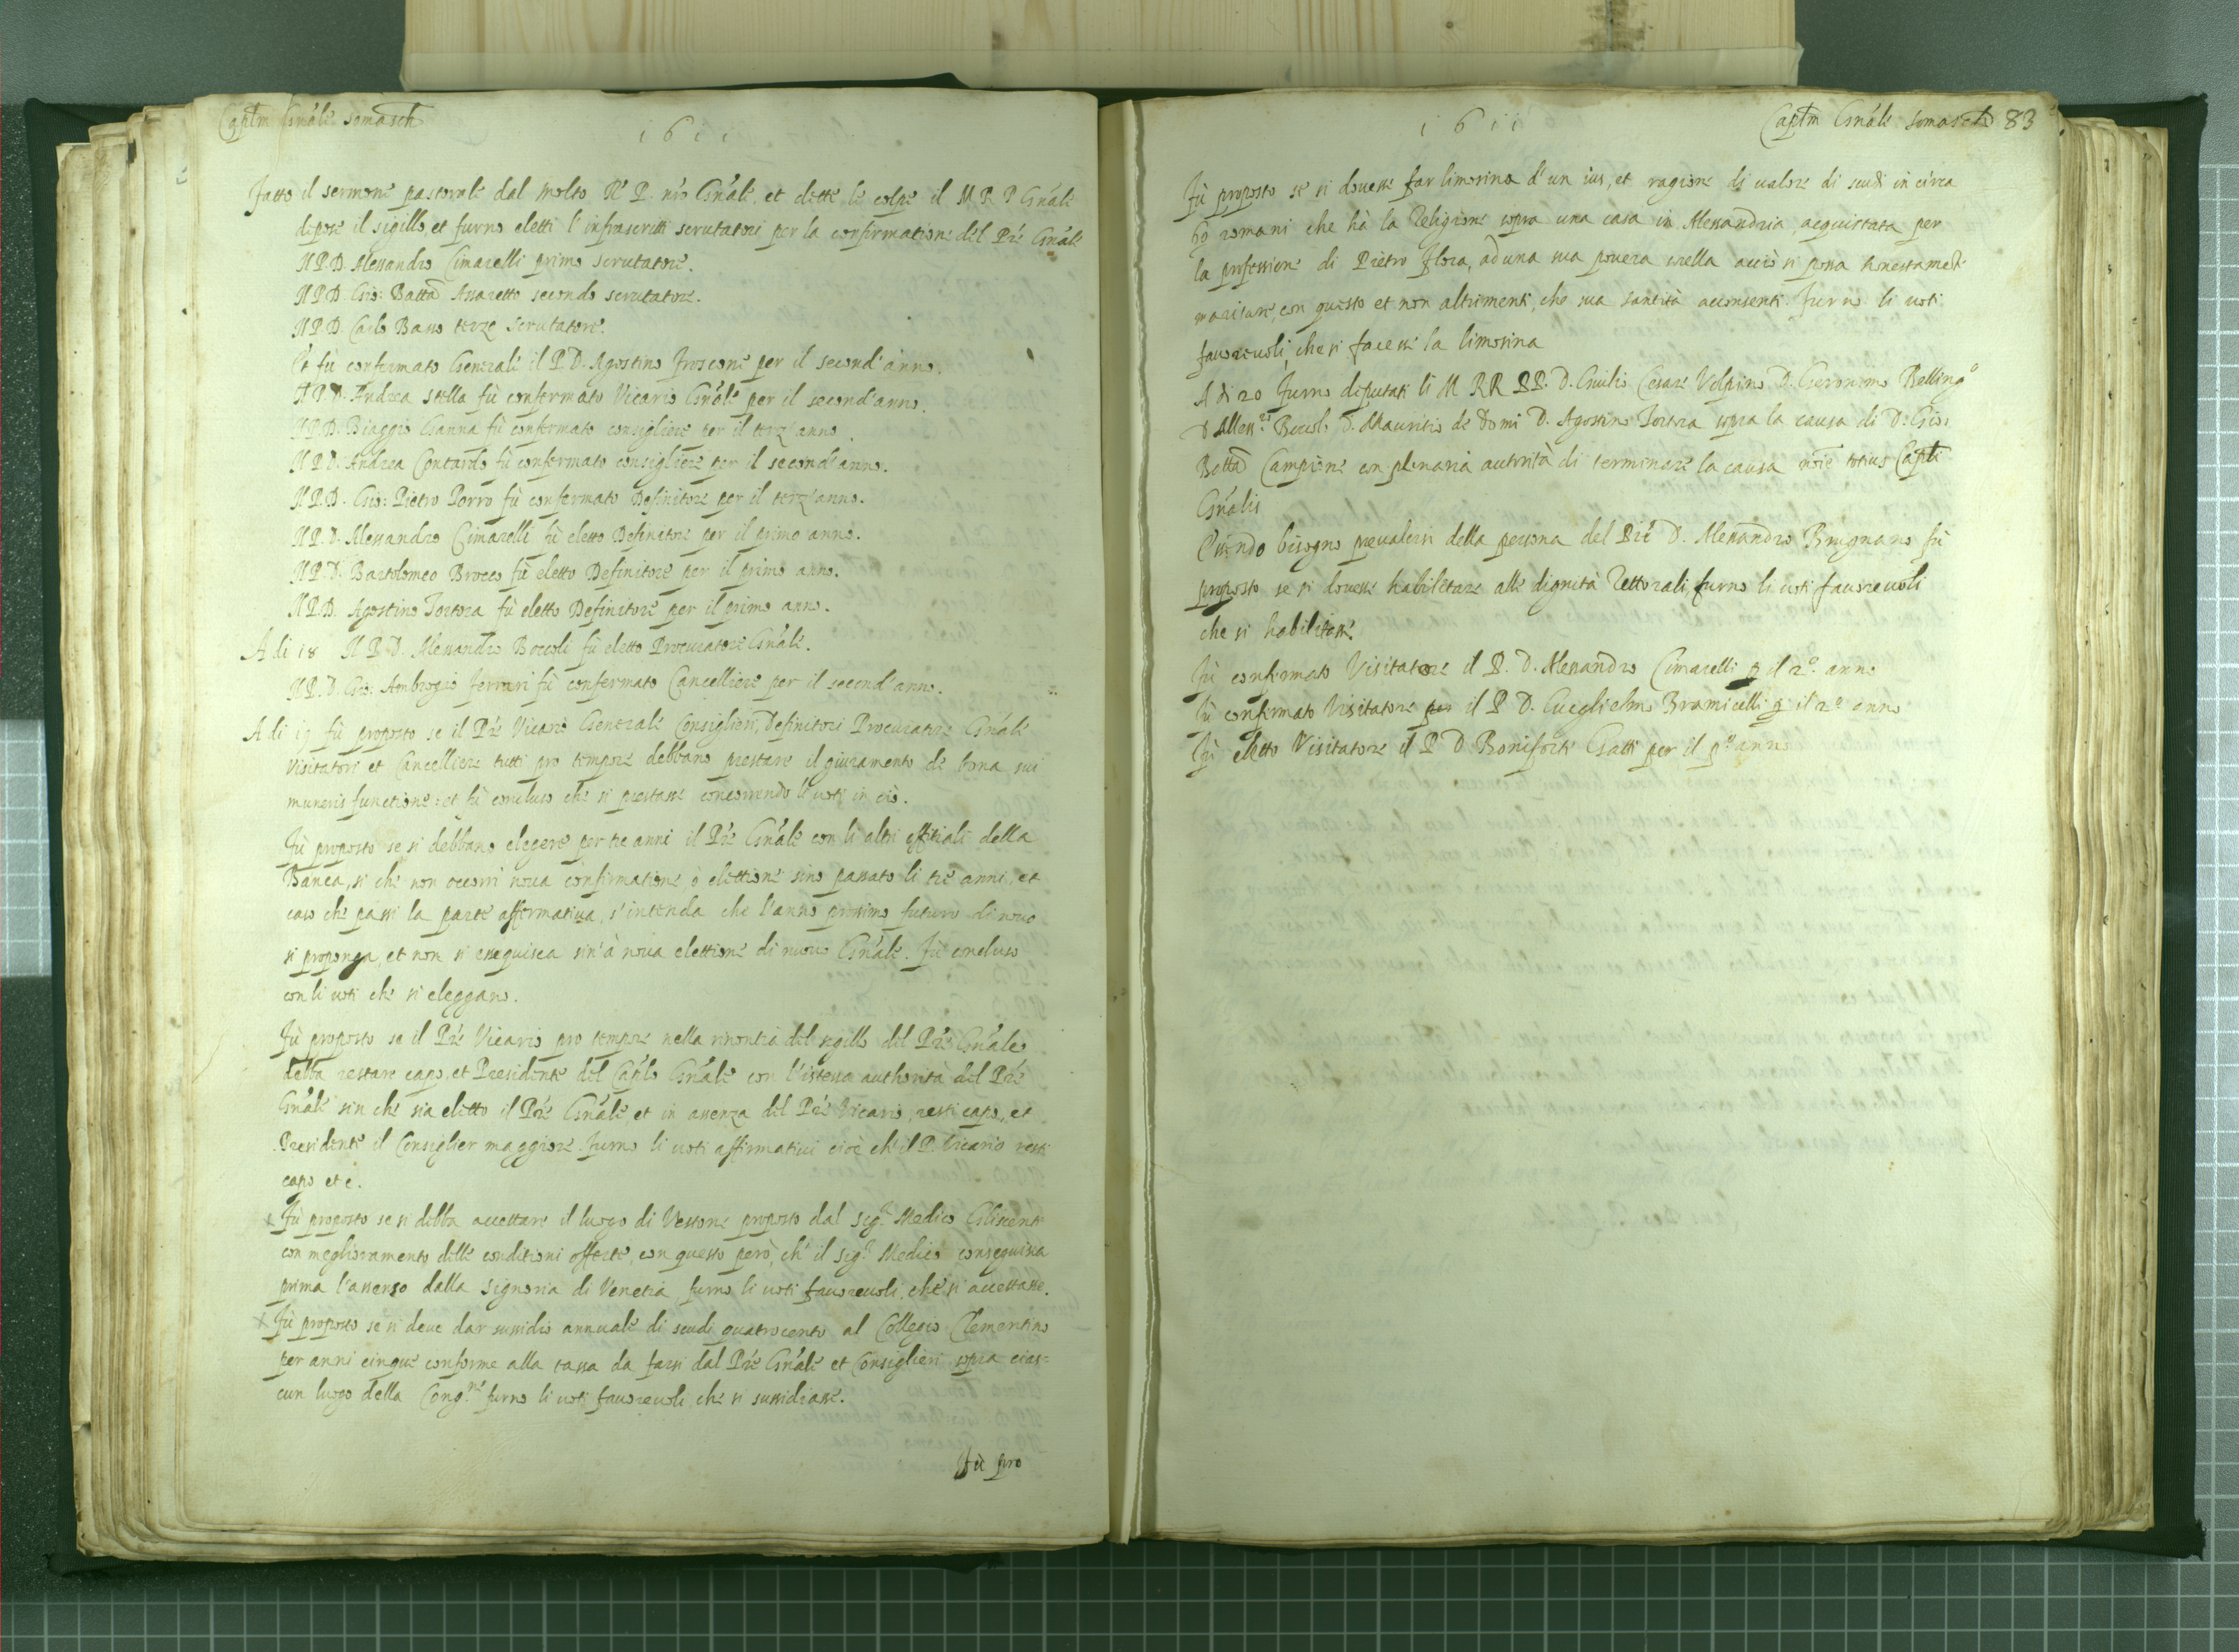 Capłm Gn̄ale Somasch
1611
Fatto il sermone pastorale dal Molto Rē P. nrō Gn̄ale, et dette le colpe il M R P Gn̄ale
depose il sigillo, et furno eletti l'infrascritti scrutatori per la confirmatione del Prē Gn̄ale
Il P.D. Alessandro Cimarelli primo scrutatore.
Il P.D. Gio: Battā Assaretto secondo scrutatore.
Il P.D. Carlo Basso terzo scrutatore.
Et fù confermato Generale il P. D. Agostino Froscone per il second'anno.
Il P.D. Andrea Stella fù confermato Vicario Gn̄ale per il second'anno.
Il P.D. Biaggio Ganna fù confermato consigliere per il terz'anno.
Il P.D. Andrea Contardo fù confermato consigliere per il second'anno.
Il P.D. Gio: Pietro Porro fù confermato Definitore per il terz'anno.
Il P.D. Alessandro Cimarelli fù eletto Definitore per il primo anno.
Il P.D. Bartolomeo Brocco fù eletto Definitore per il primo anno.
Il P.D. Agostino Tortora fù eletto Definitore per il primo anno.
A di 18 Il P. D. Alessandro Boccoli fù eletto Procuratore Gn̄ale.
Il P.D. Gio: Ambrogio Ferrari fù confermato Cancelliere per il second'anno.
A di 19 fù proposto se il Prē Vicario Generale Consiglieri, Definitori Procuratore Gn̄ale
Visitatori et Cancelliere tutti pro tempore debbano prestare il giuramento de bona sui
muneris functione: et fù concluso che si prestasse concorrendo le uoti in ciò.
Fù proposto se si debbano elegere per tre anni il Prē Gn̄ale con li altri offitiali della
Banca, si che non occorri noua confirmatione ò elettione sino passato li tre anni, et
caso che passi la parte affermatiua, s'intenda che l'anno prossimo futuro di nouo
si proponga, et non si essequisca sin'à noua elettione di nuouo Gn̄ale. Fù concluso
con li uoti che si eleggano.
Fù proposto se il Prē Vicario pro tempore nella rinontia del sigillo del Prē Gn̄ale
debba restare capo, et Presidente del Caplo Gn̄ale con l'istessa authorità del Prē
Gn̄ale sin che sia eletto il Prē Gn̄ale, et in assenza del Prē Vicario, resti capo, et
Presidente il Consiglier maggiore. Furno li uoti affirmatiui cioè ch'il P. Vicario resti
capo etc.
Fù proposto se si debba accettare il luogo di Vestone proposto dal Sigr Medico Gliscenti
con meglioramento delle conditioni offerte, con questo però, ch'il Sigr Medico conseguisca
prima l'assenso dalla Signoria di Venetia, furno li uoti fauoreuoli, che si accettasse.
Fù proposto se si deue dar sussidio annuale di scudi quatrocento al Collegio Clementino
per anni cinque conforme alla tassa da farsi dal Prē Gn̄ale et Consiglieri sopra cias=
cun luogo della Congne furno li uoti fauoreuoli che si sussidiasse.
Fù pro
1611
Capłm Gn̄ale Somasch 83
Fù proposto se si douesse far limosina d'un ius, et ragione di ualore di scudi in circa
60 romani che hà la Religione sopra una casa in Alessandria, acquistata per
la professione di Pietro Flora, ad una sua pouera sorella acciò si possa honestamēte
maritare, con questo et non altrimenti, che sua Santità acconsenti. Furno li uoti
fauoreuoli, che si facesse la limosina
A di 20 Furno diputati li M RR PP. D. Giulio Cesare Volpino D. Geronimo Bellingo
D Alessro Boccoli D. Mauritio de Domi D. Agostino Tortora sopra la causa di D. Gio:
Battā Campione con plenaria autorità di terminare la causa noīe totius Capłi
Gn̄alis
Essendo bisogno preualersi della persona del Prē D. Alessandro Brugnano fù
proposto se si douesse habilitare alle dignità Rettorali, furno li uoti fauoreuoli
che si habilitasse.
Fù confirmato Visitatore il P. D. Alessandro Cimarelli p il 2o. anno
Fù confirmato Visitatore per il P D. Gueglielmo Bramicelli p il 2o anno
Fù eletto Visitatore il P D Boniforte Gatti per il po anno